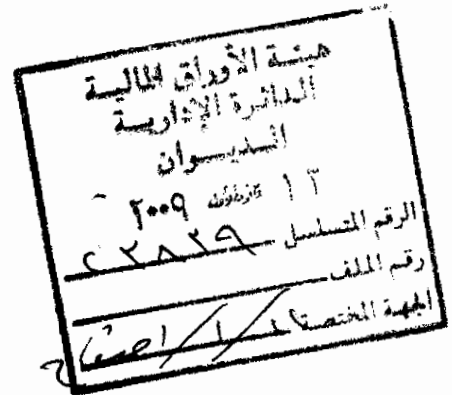 هيئة الأوراق المالية
الدائرة الإدارية
الديوان
٢٠٠٩
الرقم المتسلسل ٢٣٨٢٩
رقم الملف
الجهة المختصة